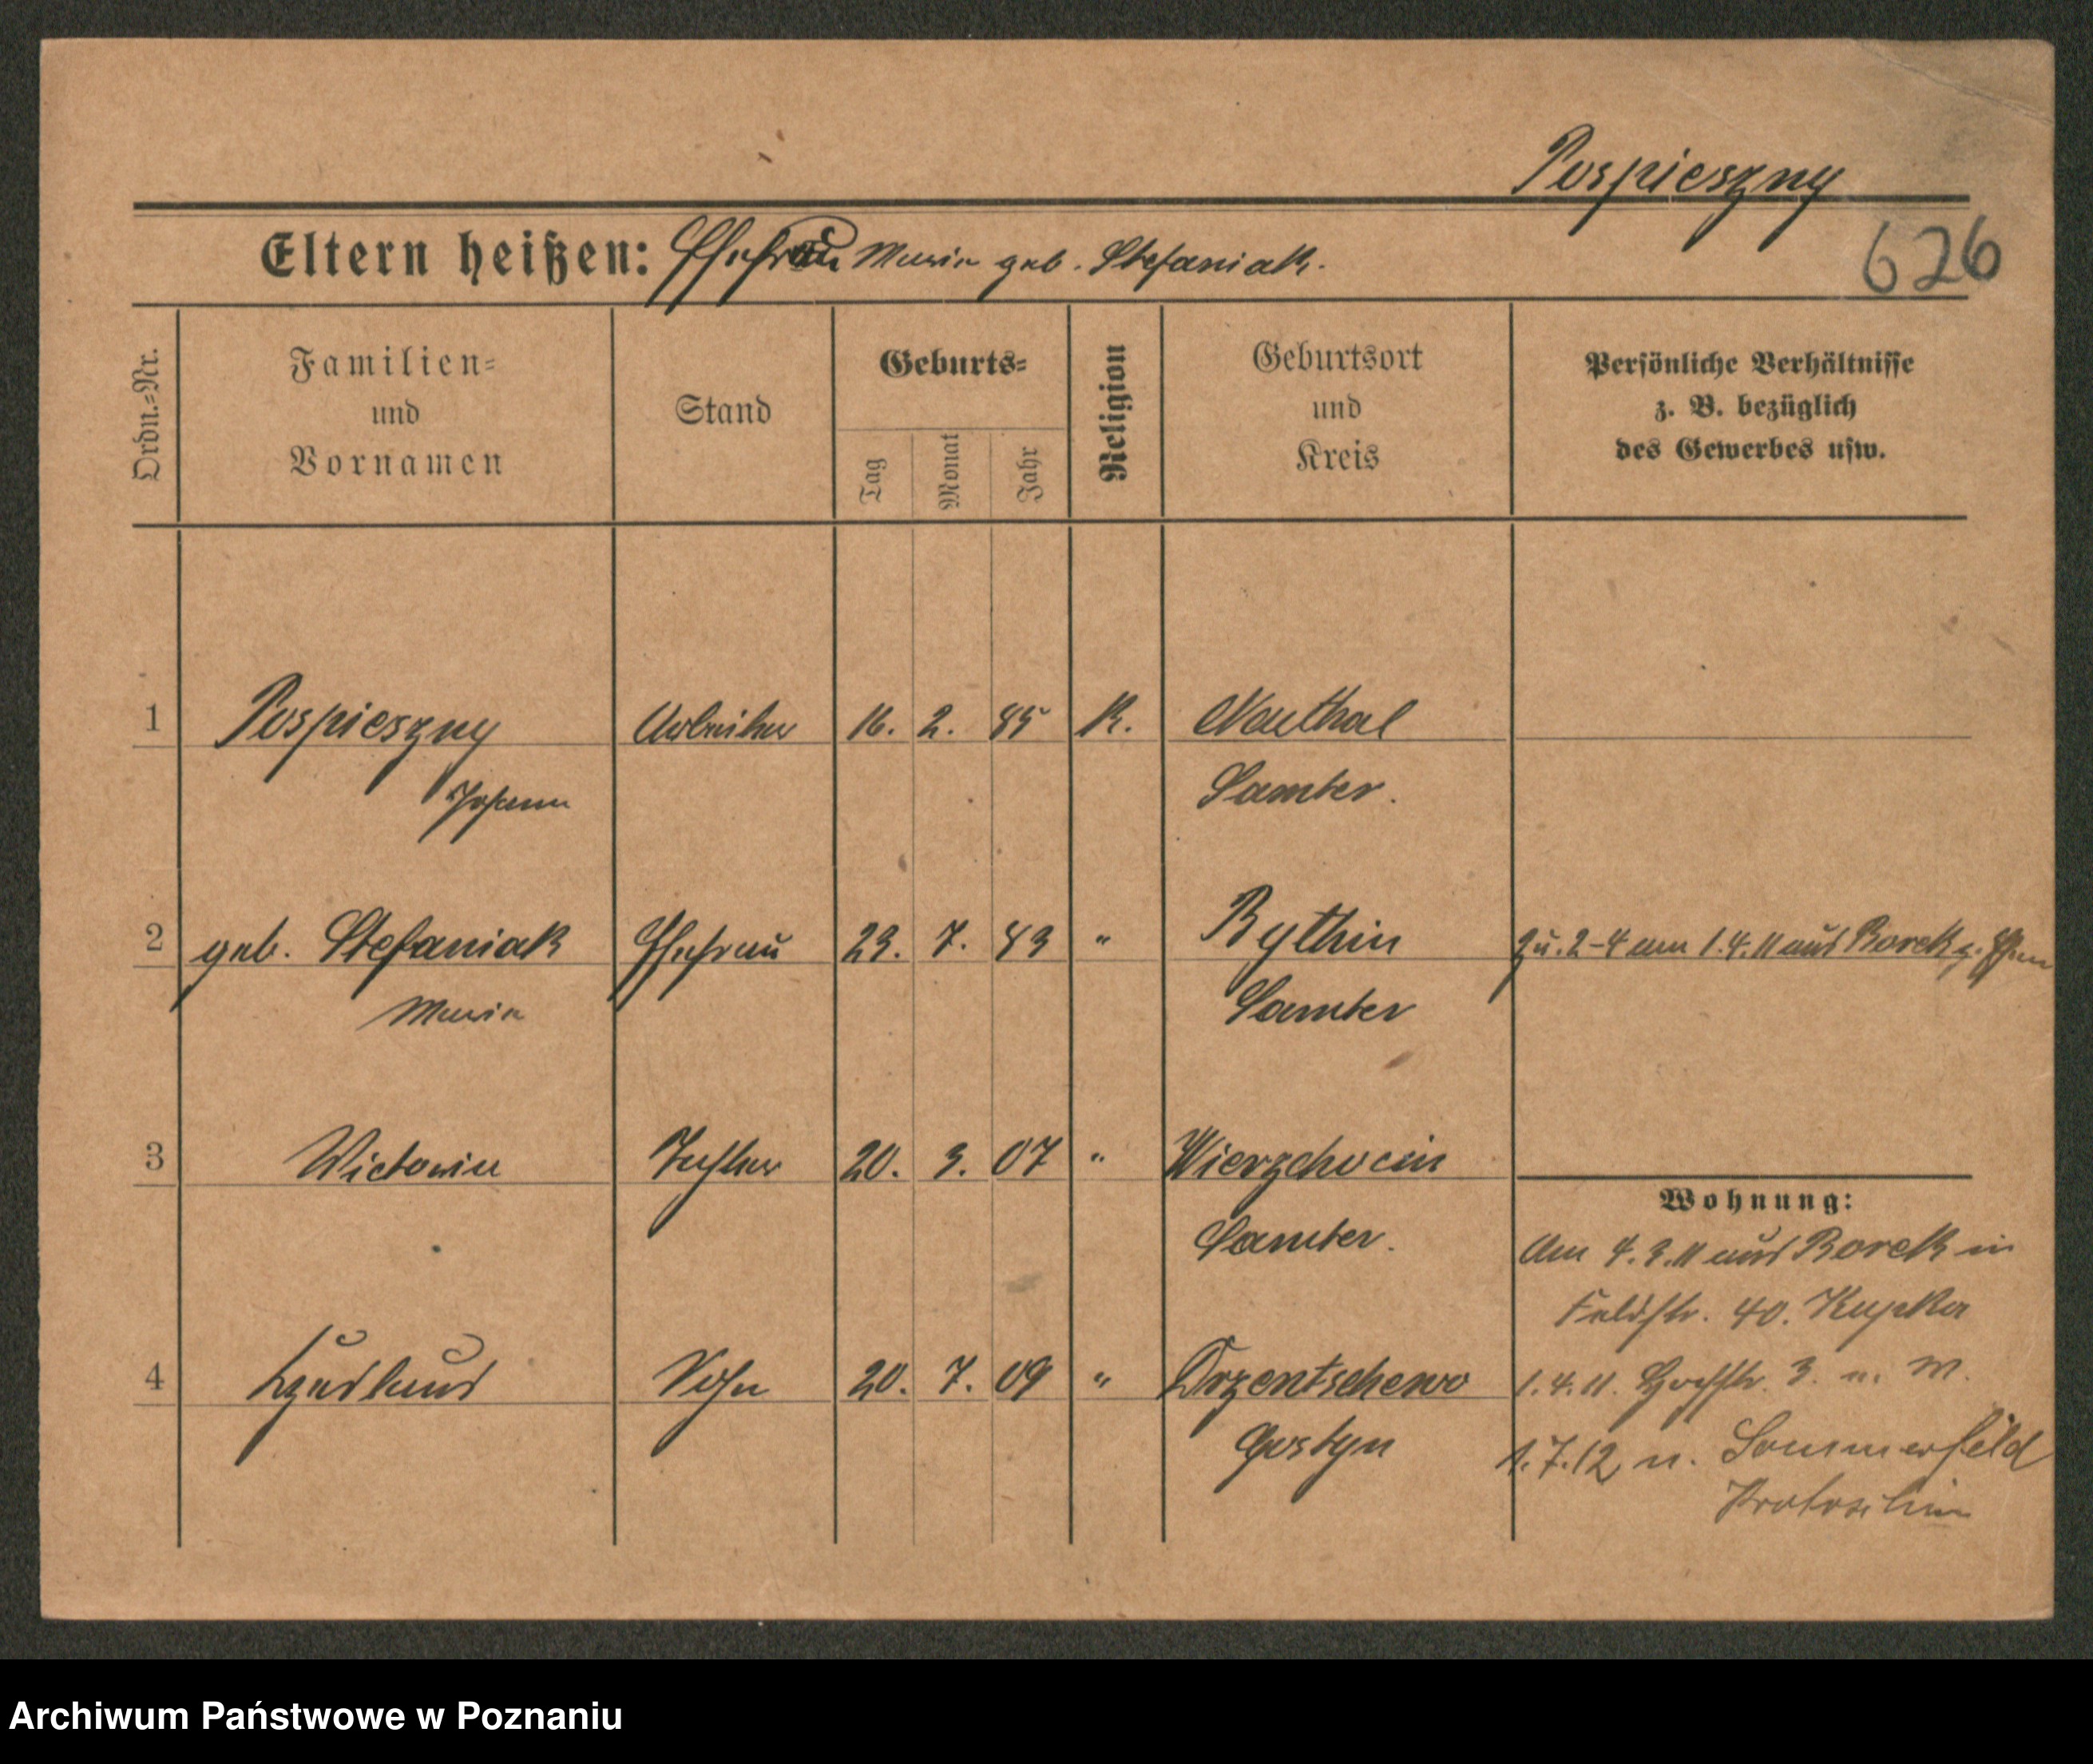 Pospieszny
Eltern heißen: Ehefrau Maria geb. Stefaniak.
626
Ordn.=Nr.
Familien=
und
Vornamen
Stand
Geburts=
Tag
Monat
Jahr
Religion
Geburtsort
und
Kreis
Persönliche Verhältnisse
z. B. bezüglich
des Gewerbes usw.
1 Pospieszny Arbeiter 16. 2. 85 K. Neuthal
Johann Samter.
2 geb. Stefaniak Ehefrau 23. 7. 83 " Rythin zu. 2-4 am 1.4.11 aus Borek z. Ehem
Maria Samter
3 Victoria Tochter 20. 3. 07 " Wierzchocin
Samter.
Wohnung:
Am 4.3.11 aus Borek in
Feldstr. 40. Kupka
4 Sohn 20. 7. 09 " Drzentschewo 1.4.11. 3. n. M.
Gostyn 1.7.12 n. Sommerfeld
Krotoschin
Archiwum Państwowe w Poznaniu